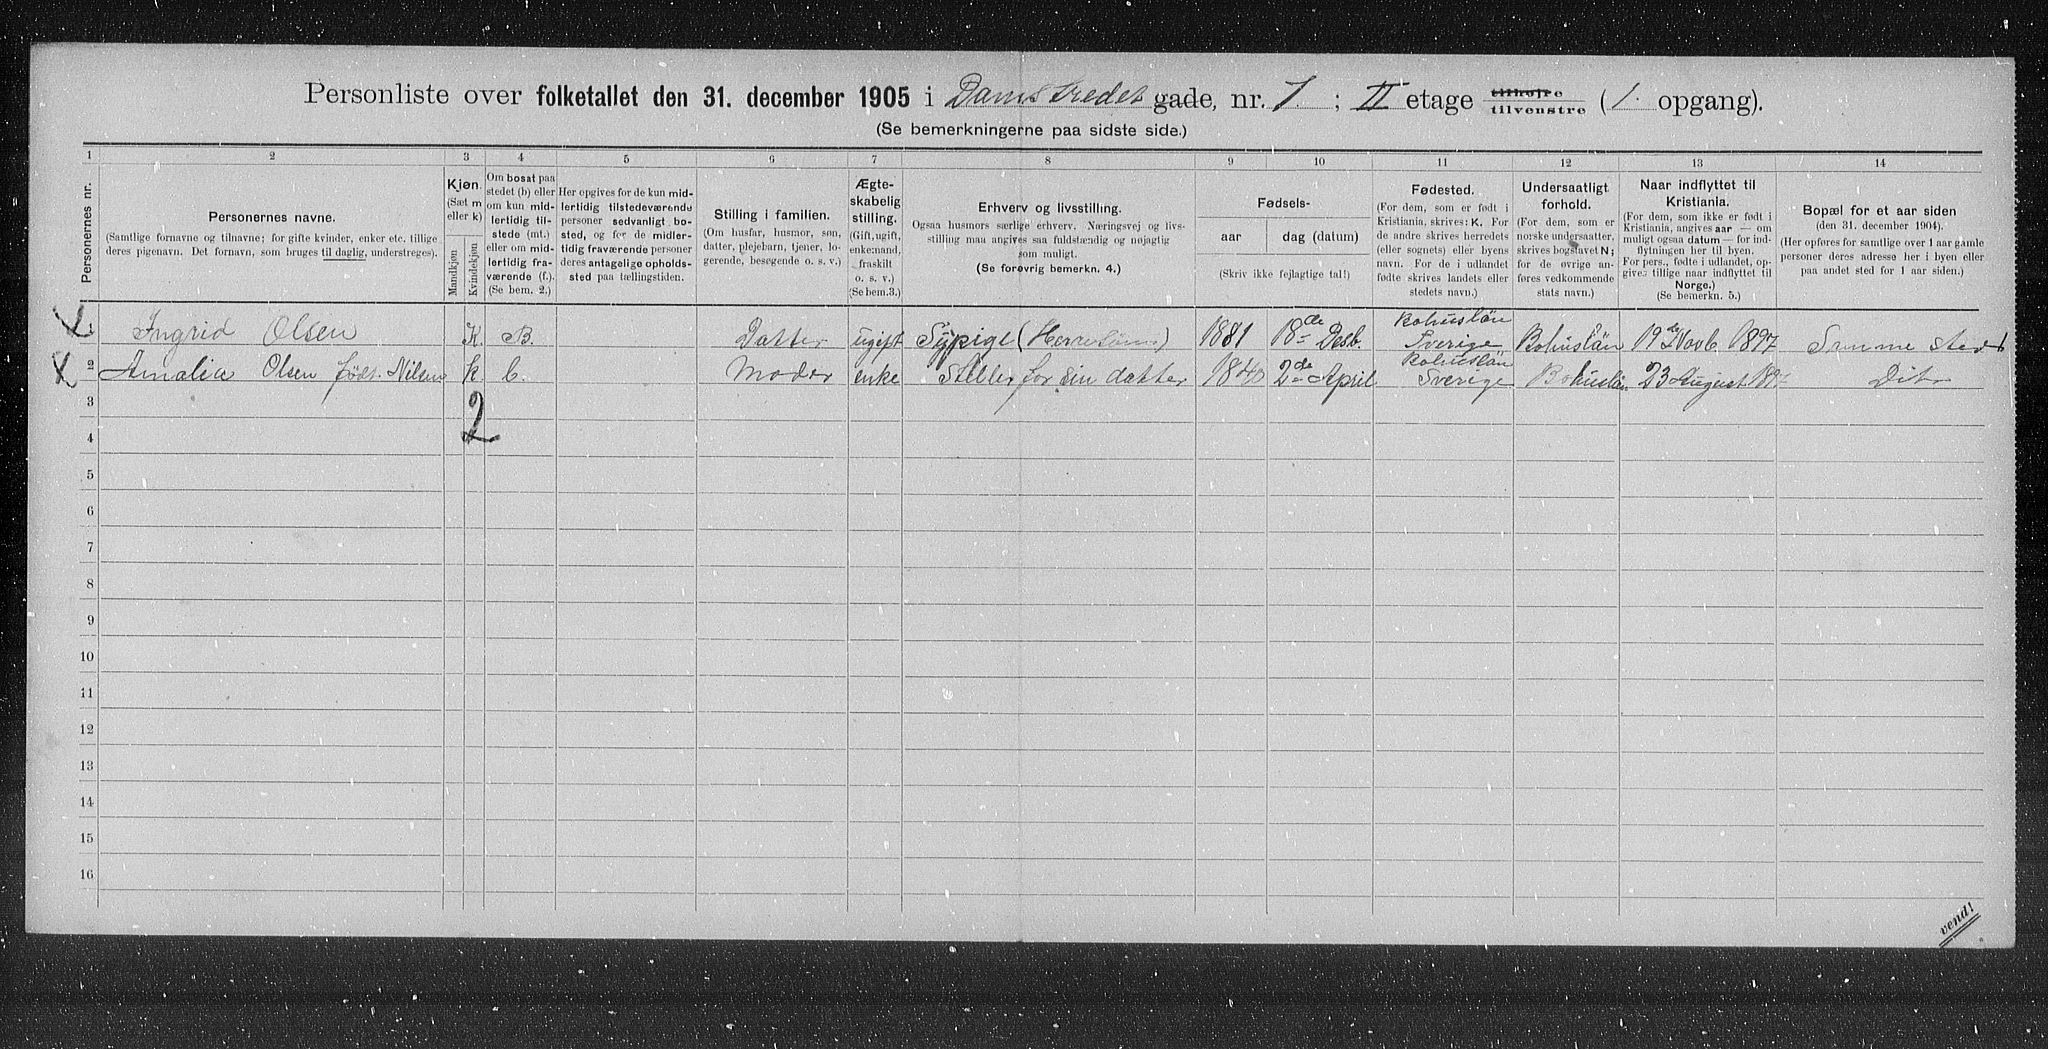 Personliste over folketallet den 31. december 1905 i Damstredet gade, nr. 7 ; II etage tilhøjre tilvenstre (1. opgang).
(Se bemerkningerne paa sidste side.)
1 2 3 4 5 6 7 8 9 10 11 12 13 14
Personernes nr.
Personernes navne.
(Samtlige fornavne og tilnavne; for gifte kvinder, enker etc. tillige
deres pigenavn. Det fornavn, som bruges til daglig, understreges).
Kjøn.
(Sæt m
eller k)
Mandkjøn
Kvindekjøn
Om bosat paa
stedet (b) eller
om kun mid-
lertidig til-
stede (mt.)
eller om mid-
lertidig fra-
værende (f.).
(Se bem. 2.)
Her opgives for de kun mid-
lertidig tilstedeværende
personer sedvanligt bo-
sted, og for de midler-
tidig fraværende personer
deres antagelige opholds-
sted paa tællingstiden.
Stilling i familien.
(Om husfar, husmor, søn,
datter, plejebarn, tjener, lo-
gerende, besøgende o. s. v.)
Ægte-
skabelig
stilling.
(Gift, ugift,
enkemand,
fraskilt
o. s. v.)
(Se bem.3.)
Erhverv og livsstilling.
Ogsaa husmors særlige erhverv. Næringsvej og livs-
stilling maa angives saa fuldstændig og nøjagtig
som muligt.
(Se forøvrig bemerkn. 4.)
Fødsels-
aar
dag (datum)
(Skriv ikke fejlagtige tal!)
Fødested.
(For dem, som er født i
Kristiania, skrives: K. For
de andre skrives herredets
(eller sognets) eller byens
navn. For de i udlandet
fødte skrives landets eller
stedets navn.)
Undersaatligt
forhold.
(For dem, som er
norske undersaatter,
skrives bogstavet N;
for de øvrige an-
føres vedkommende
stats navn.)
Naar indflyttet til
Kristiania.
(For dem, som ikke er født i
Kristiania, angives aar — om
muligt ogsaa datum — for ind-
flytningen her til byen.
For pers., fødte i udlandet, op-
gives tillige naar indflyttet til
Norge.)
(Se bemerkn. 5.)
Bopæl for et aar siden
(den 31. december 1904).
(Her opføres for samtlige over 1 aar gamle
personer deres adresse her i byen eller
paa andet sted for 1 aar siden.)
1 Ingrid Olsen K. B. Datter ugift Sypige (Herresøm) 1881 18de Desb. Bohuslän Sverige Bohuslän 19de Novb 1897 Samme sted
2 Amalia Olsen født. Nilsen k. b. Moder enke Steller for sin datter 1840 2de April Bohuslän Sverige Bohuslän 23 August 1897 Dito
3
2
4
5
6
7
8
9
10
11
12
13
14
15
16
vend!